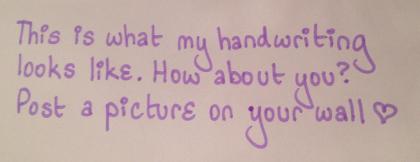 This is what my handwriting
looks like. How about you?
Post a picture on your wall ♡